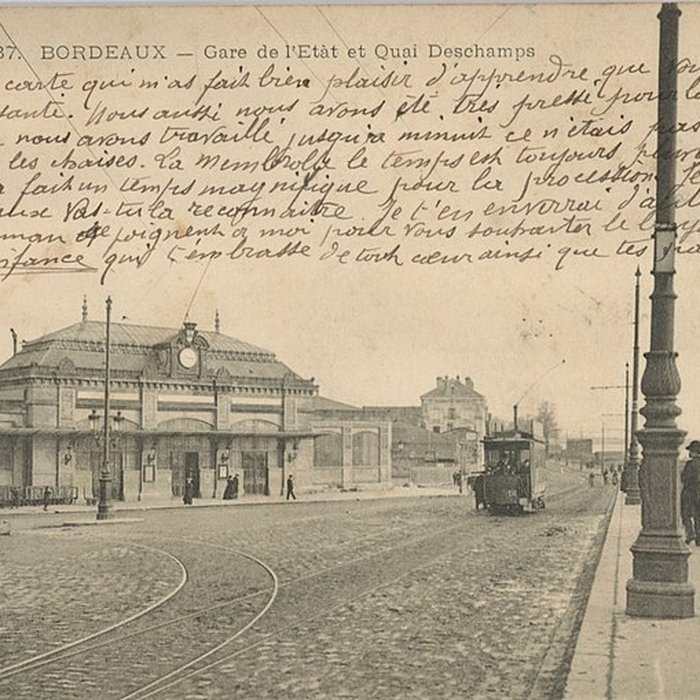 37. BORDEAUX — Gare de l'Etàt et Quai Deschamps
carte qui m'as fait bien plaisir d'apprendre que
santé. Nous aussi nous avons été très pressé pour
nous avons travaillé jusqu'a minuit ce n'étais pas
les chaises. La Membrolle le temps est toujours
fait un temps magnifique pour la procession
vas-tu la reconnaitre. Je t'en enverrai d'
joignent a moi pour vous souhaiter le
enfance qui t'embrasse de tout cœur ainsi que tes